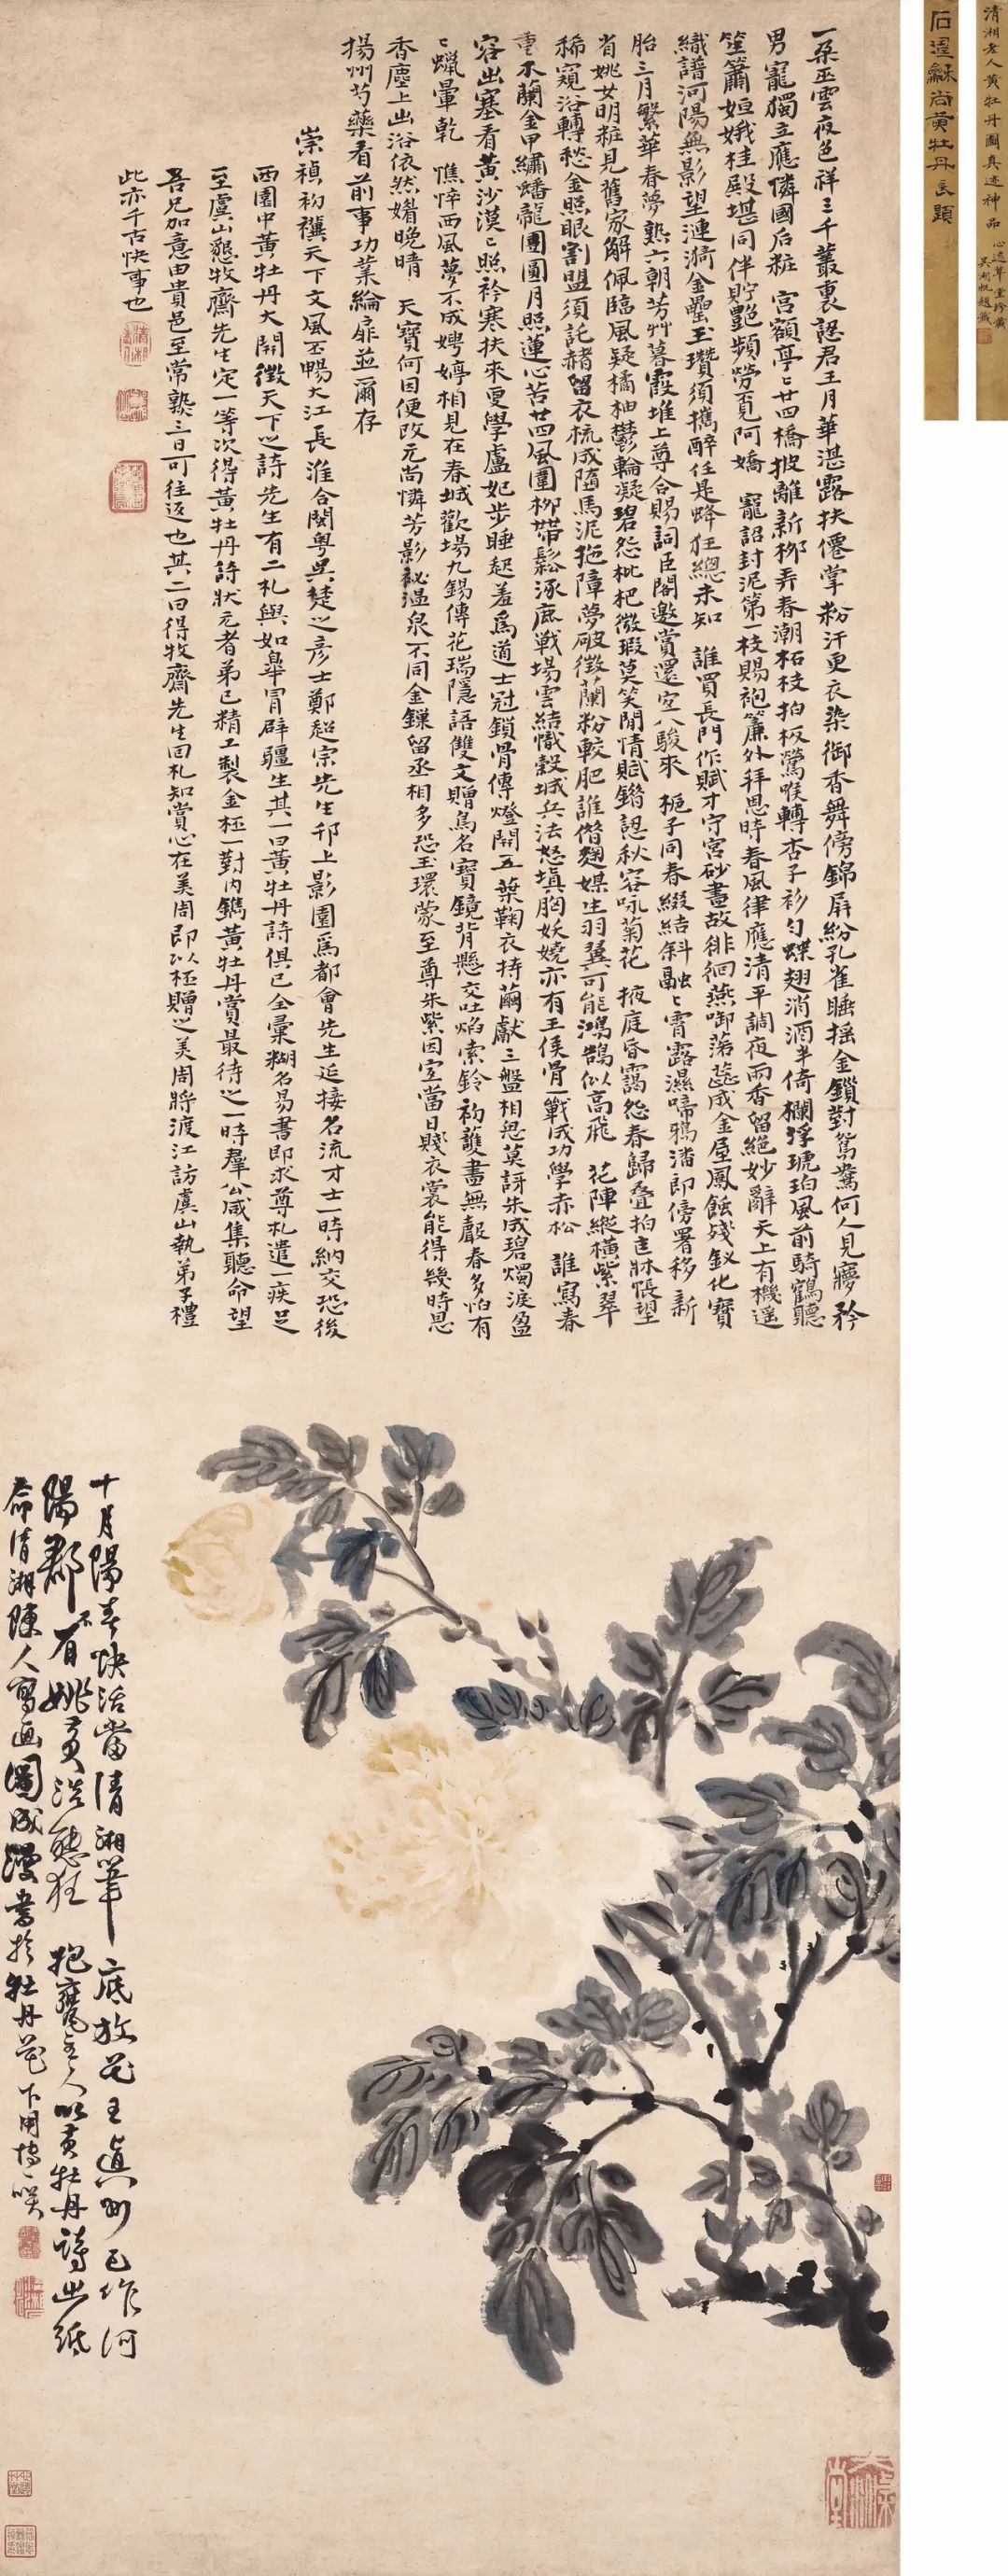 一朵巫雲夜色祥三千叢裏認君王月華湛露扶僊掌粉汗更衣染御香舞傍錦屏紛孔雀睡搖金鎖對鴛鴦何人見寢矜
男寵獨立應憐國后粧 宮額亭亭廿四橋披離新柳弄春潮柘枝拍板鶯喉轉杏子衫勻蝶翅消酒半倚欄浮琥珀風前騎鶴聽
笙簫姮娥桂殿堪同伴貯艷頻勞覓阿嬌 寵詔封泥第一枝賜袍簾外拜恩時春風律應清平調夜雨香留絕妙辭天上有機遥
織譜河陽無影望漣漪金罍玉瓚須攜醉任是蜂狂總未知 誰買長門作賦才守宮砂畫故徘徊燕啣落蕊成金屋鳳蝕殘釵化寶
胎三月繁華春夢熟六朝芳艸暮霞堆上尊合賜詞臣閣邀賞還定八駿來 梔子同春綴結斜融融霄露濕啼鴉潘郎傍署移新
省姚女明粧見舊家解佩臨風疑橘柚鬱輪凝碧怨枇杷微瑕莫笑閒情賦錯認秋容咏菊花 掖庭昏靄怨春歸叠拍牀悵望
稀窺浴轉愁金照眼割盟須託赭留衣梳成隨馬泥拖障夢破徵蘭粉較肥誰借麯媒生羽翼可能鴻鵠似高飛 花陣縱橫紫翠
重木蘭金甲繡蟠龍團圓月照蓮心苦廿四風圍柳帶鬆涿鹿戰場雲結幟穀城兵法怒填胸妖嬈亦有王侯骨一戰成功學赤松 誰寫春
容出塞看黃沙漠漠照衿寒扶來更學盧妃步睡起羞為道士冠鎖骨傳燈開五葉鞠衣持繭獻三盤相思莫訝朱成碧燭淚盈
盈蠟暈乾 憔悴西風夢不成娉婷相見在春城歡場九錫傳花瑞隱語雙文贈鳥名寶鏡背懸交吐焰索鈴初護畫無聲春多怕有
香塵上出浴依然媚晚晴 天寶何因便改元尚憐芳影祕溫泉不同金鏁留丞相多恐玉環蒙至尊朱紫因定當日賤衣裳能得幾時恩
揚州芍藥看前事功業綸扉並爾存
崇禎初禩天下文風丕暢大江長淮合閩粵吳楚之彥士鄭超宗先生邗上影園為都會先生延接名流才士一時納交恐後
西園中黃牡丹大開徵天下之詩先生有二札與如皋冒辟疆生其一曰黃牡丹詩俱已全彙糊名易書即求尊札遣一疾足
至虞山懇牧齋先生定一等次得黃牡丹詩狀元者弟已精工製金柸一對內鐫黃牡丹賞最待之一時羣公咸集聽命望
吾兄加意由貴邑至常熟三日可往返也其二曰得牧齋先生回札知賞心在美周即以柸贈之美周將渡江訪虞山執弟子禮
此亦千古快事也
十月陽春快活當清湘筆底放花王真州已作河
陽郡不有姚黃洪聽狂 抱甕主人以黃牡丹詩出紙
命清湘陳人寫画圖成漫書於牡丹花下用博一笑
石濤龢尚黃牡丹長題
清湘老人黃牡丹圖真迹神品
心遠草堂珍藏
吳湖帆題籤